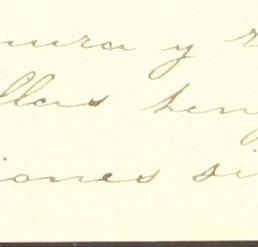 mura y r
llas ten
iones si